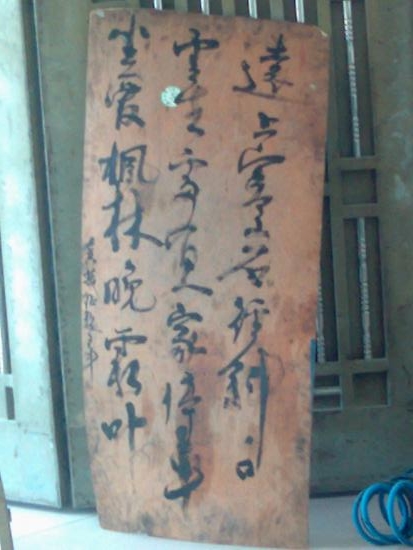 遠上寒山石徑斜白
雲生處有人家停車
坐愛楓林晚霜叶